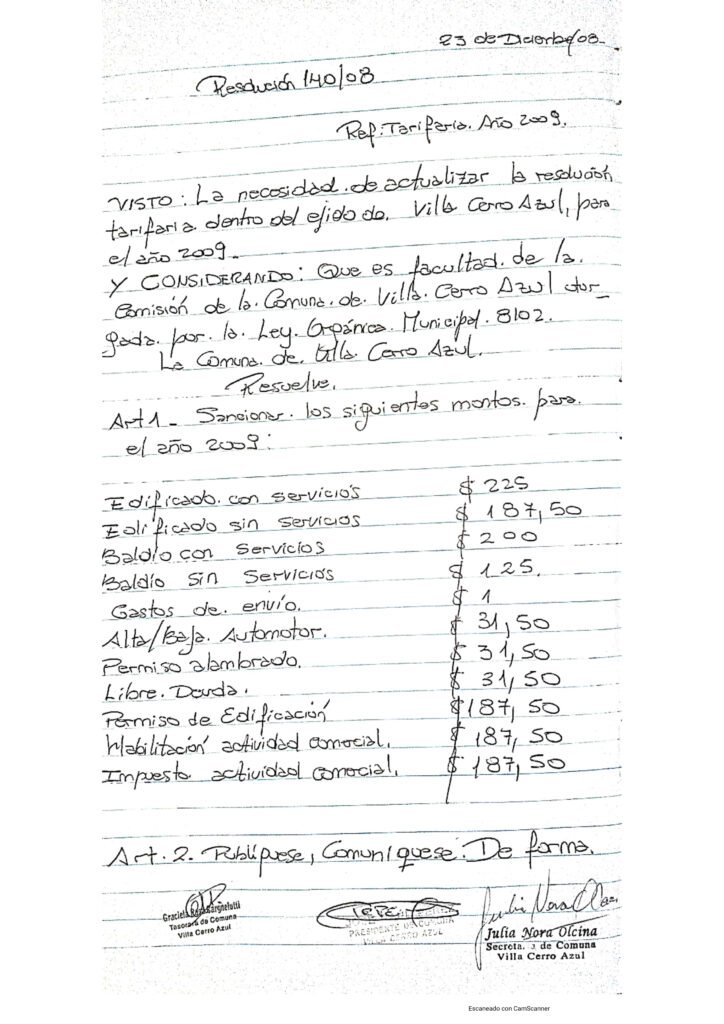 23 de Diciembre/08.
Resolución 140/08
Ref: Tarifaria. Año 2009.
VISTO: La necesidad de actualizar la resolución
tarifaria dentro del ejido de. Villa Cerro Azul, para
el año 2009.
Y CONSIDERANDO: Que es facultad. de la.
Comisión de la. Comuna. de. Villa. Cerro Azul otor_
gada. por. la. Ley. Orgánica. Municipal. 8102.
La Comuna. de. Villa. Cerro Azul.
Resuelve.
Art 1_ Sancionar. los siguientes montos. para.
el año 2009:
Edificado. con servicios $ 225
Edificado sin servicios $ 187,50
Baldío con servicios $ 200
Baldío sin servicios $ 125.
Gastos de. envío. $ 1
Alta/Baja. Automotor. $ 31,50
Permiso alambrado. $ 31,50
Libre. Deuda. $ 31,50
Permiso de Edificación $187,50
Habilitación actividad comercial. $ 187,50
Impuesto actividad comercial. $ 187,50
Art. 2. Publíquese, Comuníquese. De forma.
Graciela
Tesorera de Comuna
Villa Cerro Azul
PRESIDENTE DE COMUNA
VILLA CERRO AZUL
Julia Nora Olcina
Julia Nora Olcina
Secreta. a de Comuna
Villa Cerro Azul
Escaneado con CamScanner